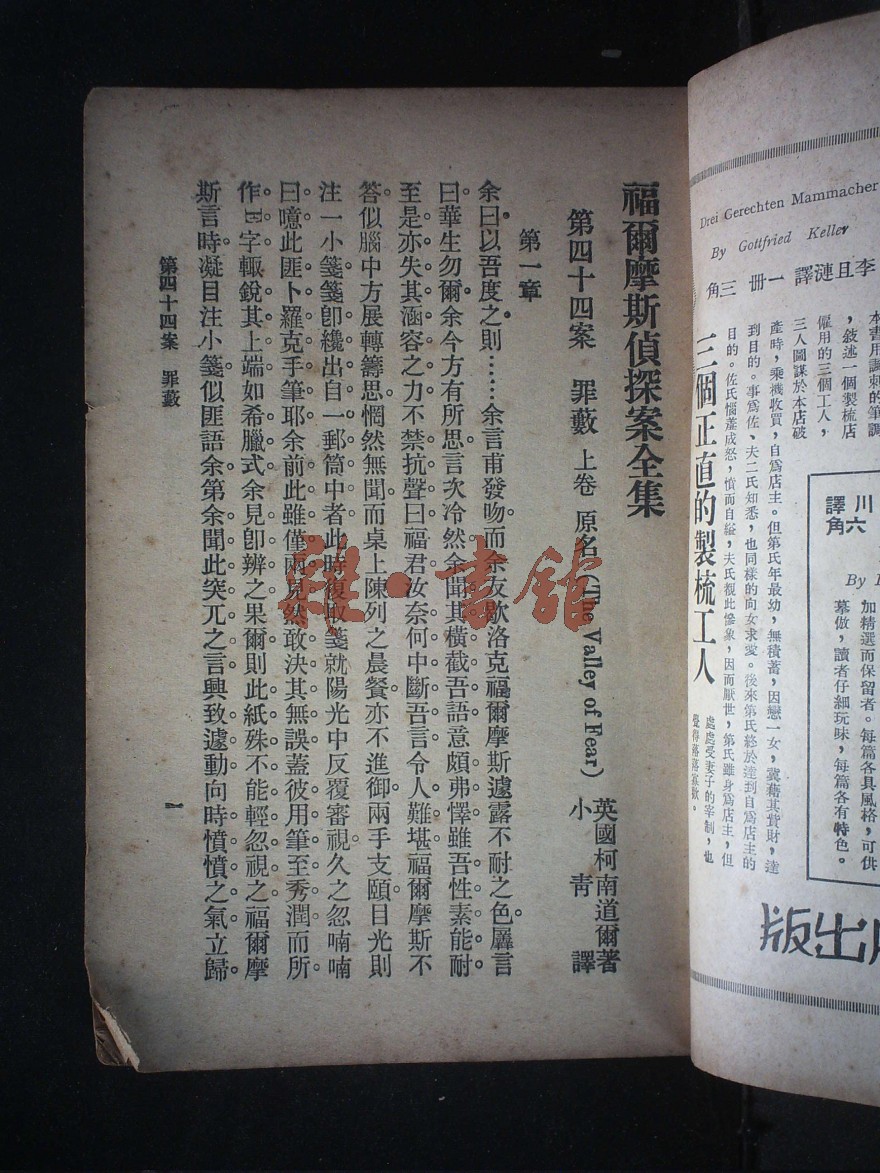 福爾摩斯偵探案全集
第四十四案 罪藪 上卷 原名(The Valley of Fear)
英國柯南道爾著
小青譯
第一章
余曰以吾度之則……余言甫發吻而余友歇洛克福爾摩斯遽露不耐之色羼言
曰華生勿爾余今方有所思言次冷然余聞其橫截吾語意頗弗懌雖吾性素能耐
至是亦失其涵容之力不禁抗聲曰福君汝奈何中斷吾言令人難堪福爾摩斯不
答似腦中方展轉籌思惘然無聞而桌上陳列之晨餐亦不進御兩手支頤目光則
注一小箋箋卽纔出自一郵筒中者此時復取箋就陽光中反覆審視久之忽喃喃
曰噫此匪卜羅克手筆耶余前此雖僅兩見然敢決其無誤蓋彼用筆至秀潤而所
作E字輒銳其上端如希臘式余見卽辨之果爾則此紙殊不能輕忽視之福爾摩
斯言時凝目注小箋似匪語余第余聞此突兀之言興致遽動向時憤憤之氣立歸
第四十四案 罪藪
一
雜·書館
Drei Gerechten Mammacher
By Gottfried Keller
李且漣譯 一冊 三角
三個正直的製梳工人
本書用諷刺的筆調
,敍述一個製梳店
僱用的三個工人,
三人圖謀於本店破
產時,乘機收買,自爲店主。但第氏年最幼,無積蓄,因戀一女,冀藉其貲財,達
到目的。事爲佐、夫二氏知悉,也同樣的向女求愛。後來第氏終於達到自爲店主的
目的。佐氏惱羞成怒,憤而自縊,夫氏覩此慘象,因而厭世,第氏雖身爲店主,但
處處受妻子的宰制,也
覺得落落寡歡。
川
譯
六
角
By
加精選而保留者。每篇各具風格,可供
摹倣,讀者仔細玩味,每篇各有特色。
版出